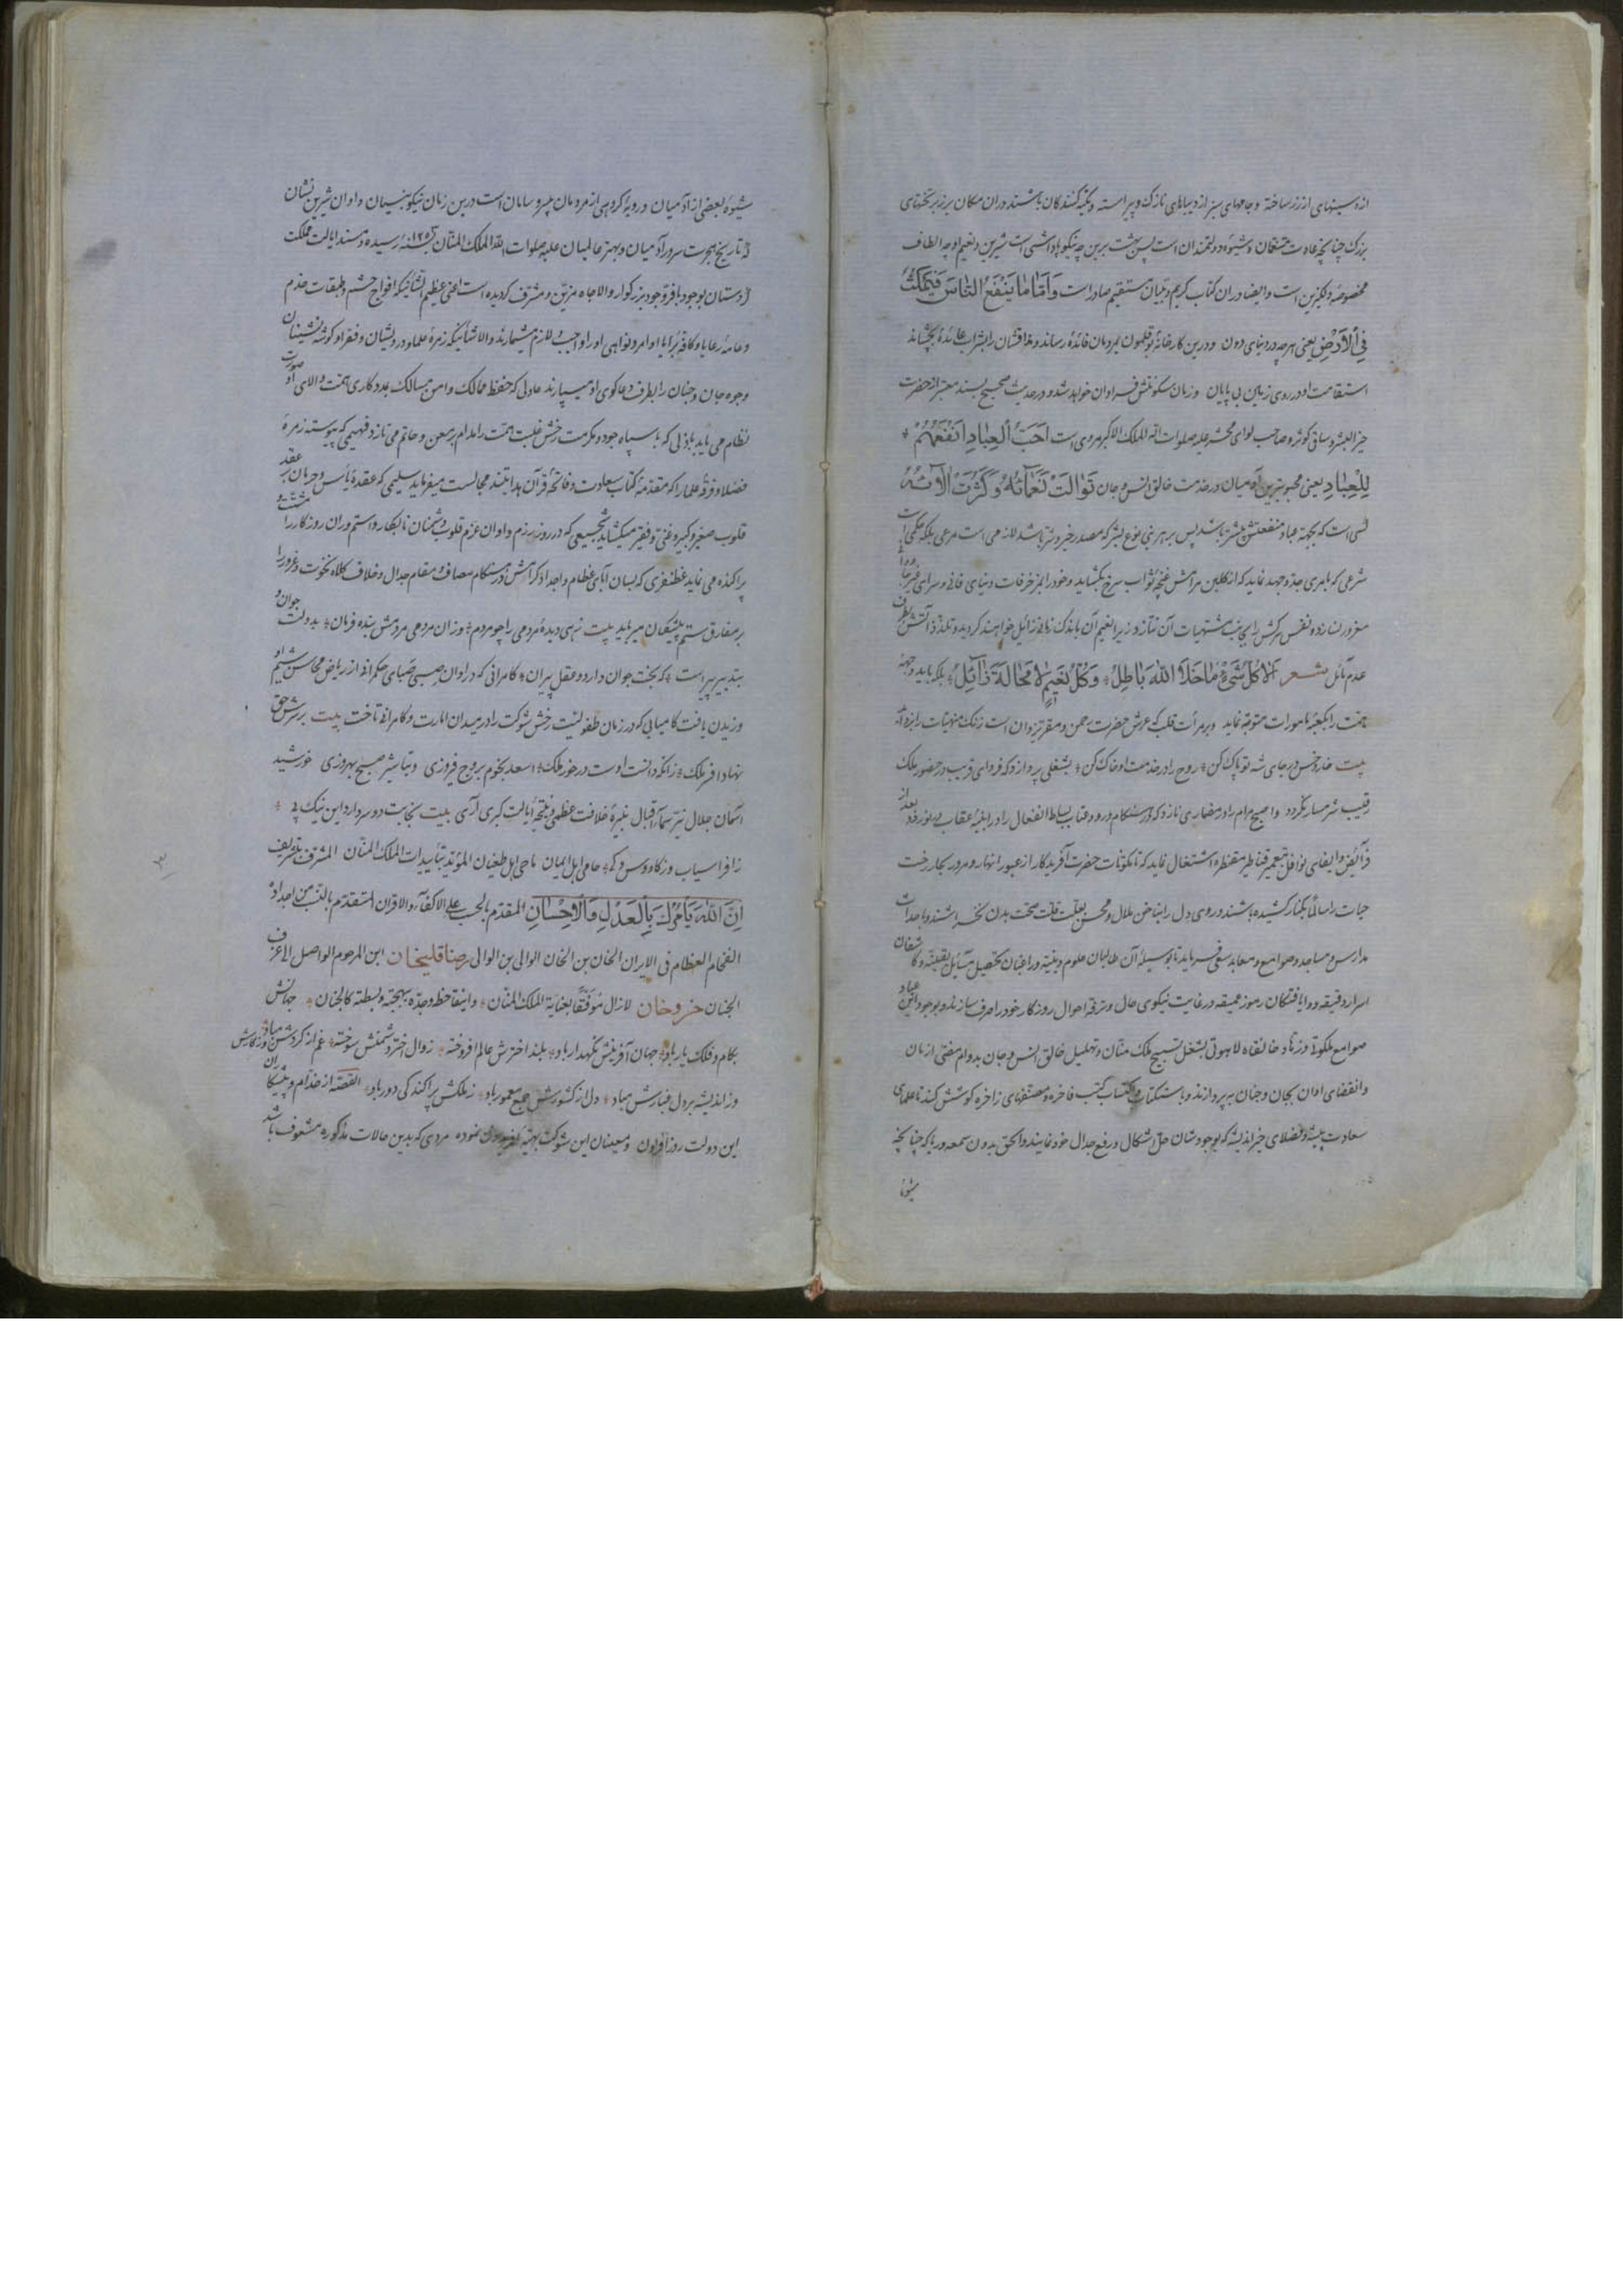 بزرک چنانچه عادت متنعمان و شیوه دولتمندان است پس بهشت برین چه نیکو پاداشی است شیرین و نعیم او چه الطاف
مخصوصه دلکزین است وایضا دران کتاب کریم و تبیان مستقیم صادر است وَاَمّا ما یَنفَعُ النّاسَ فَیَمکُثُ
فِی اْلاَرْضِ یعنی هرچه در دنیای دون و درین کارخانهٔ بوقلمون بمردمان فائدهٔ رساند
استقامت او در روی زمین بی پایان و زمان سکونتش فراوان خواهد شد و در حدیث صحیح بسند معتبر از حضرت
خیر البشر و ساقی کوثر و صاحب لوای محشر علیه صلوات الله الملک الاکبر مروی است اَحَبُّ الْعِبادِ اَنفَعُهُمْ
لِلْعِبادِ یعنی محبوبترین آدمیان در خدمت خالق انس و جان تَوالَتْ نَعمآئُهُ وَکَثُرَتْ اٰلآئُهُ
کسی است که بجهة عباد منفعتش بیشتر باشد پس بر هر بنی نوع بشر که مصدر خیر و شر باشد لازمی است مرعی بلکه حکمی است
شرعی که بامری جد و جهد نماید که از کلبن مرامش غنچهٔ ثواب سرخ بکشاید و خود را بمزخرفات دنیای فانی و سرای
مغرور نسازد و نفس سرکش را بجانب مشتهیات آن نتازد زیرا نعیم آن باندک زمانه زائل خواهند کردید و تلذذاتش بطرف
عدم مائل شعر اَلا کُلُّ شَیْءٍ ما خَلا اللهَ باطِلٌ وَکُلُّ نَعیمٍ لا مَحالَةَ زآئِلٌ بلکه باید وجههٔ
همت را بکعبهٔ مامورات متوجه نماید و بر مرآت قلب که عرش حضرت رحمن و مقر یزدان است زنک منهیات
بیت خار و خس در جای شه تو پاک کن روح را در خدمت او خاک کن بشغلی پردازد که فردای قریب در حضور ملک
رقیب شرمسار نکردد
فرآئض و ایفای نوافل بتعمیر قناطیر مقنطره اشتغال نماید که تا مکونات حضرت آفریدکار از عبور انهار و مرور بحار رخت
حیات را سالما بکنار کشیده باشند و روی دل را بناخن ملال و محن بعلت قلت صحت بدن نخراشند و باحداث
مدارس و مساجد و صوامع و معابد سعی فرماید تا بوسیلهٔ آن طالبان علوم دینیه و راغبان تحصیل مسائل یقینیه و کاشفان
اسرار دقیقه و دریافتکان رموز عمیقه در غایت نیکوی حال و ترفه احوال روزکار خود را صرف سازند و بوجود این عباد
صوامع ملکوت و زهاد خانقاه لاهوتی بشغل تسبیح ملک منان و تهلیل خالق انس و جان بدوام مضی ازمان
و انقضای اوان بجان و جنان بپردازند و باستکتاب و اکتساب کتب فاخره و مصنفهای زاخره کوشش کنند تا علمای
سعادت پیشه و فضلای خیراندیشه که بوجودشان حل اشکال و رفع جدال خود نمایند والحق بدون سمعه و ریا که چنانچه
شیوهٔ
شیوهٔ بعضی از آدمیان و رویهٔ کروهی از مردمان بی سر و سامان است درین زمان نیکو بنیان و اوان شیرین نشان
که تاریخ هجرت سرور آدمیان و بهتر عالمیان علیه صلوات الله الملک المنان رسیده و مسند ایالت مملکت
اردستان بوجود با فر وجود بزرکوار والاجاه مزین و مشرف کردیده است اعنی عظیم الشانیکه افواج حشم و طبقات خدم
و عامهٔ رعایا و کافهٔ برایا اوامر و نواهی او را واجب و لازم میشمارند والاشانیکه زمرهٔ علما و درویشان و فقرا و کوشه نشینان
وجوه جان و جنان را بطرف دعاکوی او میسپارند عادلی که حفظ ممالک و امن مسالک بمددکاری همت والای او صورت
نظام می یابد باذلی که با سپاه جود و مکرمت رخش غلبت همت را مدام بر معن و حاتم می تازد فهیمی که پیوسته زمرهٔ
فضلا و فرقهٔ علما را که مقدمهٔ کتاب سعادت و فاتحهٔ قرآن هدایتند مجالست میفرماید سلیمی که عقدهٔ یأس و حرمان بر
قلوب صغیر و کبیر و غنی و فقیر میکشاید شجیعی که در روز رزم و اوان عزم قلوب دشمنان نابکار و استمروان روزکار را
پراکنده می نماید غضنفری که بسان آبای عظام و اجداد کرامش در هنکام مصاف و مقام جدال و خلاف کلاه نخوت و غرور را
بر مفارق ستم پیشکان میرباید بیت زهی دیدهٔ مردمی را چو مردم وزان مردمی مردمش بنده فرمان بدولت جوان و
بتدبیر پیر است که بخت جوان دارد و عقل پیران کامرانی که در اوان صبی صبای حکمرانی از ریاض محاسن شیم او
وزیدن یافت کامیابی که در زمان طفولیت رخش شوکت را در میدان امارت و کامرانی تاخت بیت بر سرش حق
نهاد افسر ملک زانکه دانست اوست درخور ملک اسعد نجوم بروج فیروزی و تباشیر صبح بهروزی خورشید
آسمان جلال نیر سمآء اقبال نبیرهٔ خلافت عظمی و نتیجهٔ ایالت کبری آری بیت نجابت دو سر دارد این نیک پی
ز افراسیاب و ز کاووس کی حامی اهل ایمان ماحی اهل طغیان المؤید بتأییدات الملک المنان المشرف بتشریف
اِنَّ اللهَ یَأمُرُکَ بِالْعَدْلِ وَالْاِحْسانِ المقدم بالحسب علی الاکفآء والاقران المتقدم بالنسب من اجداده
الفخام العظام فی الایران الخان بن الخان الوالی بن الوالی رضاقلیخان ابن المرحوم الواصل الی غرف
الجنان خسروخان لازال موفقا بعنایة الملک المنان وابقا حظه وجده ببهجته وبسطته کالجنان جهانش
بکام و فلک یار باد جهان آفرینش نکهدار باد بلند اخترش عالم افروخته زوال اختر دشمنش سوخته غم از کردش روزکارش مباد
وز اندیشه بر دل غبارش مباد دل از کشورش جمع معمور باد ز ملکش پراکندکی دور باد القصه از خدام و پیشکاران
این دولت روزافزون و معینان این شوکت بهیه نموده مردی که بدین حالات مذکوره مشعوف باشد
۳